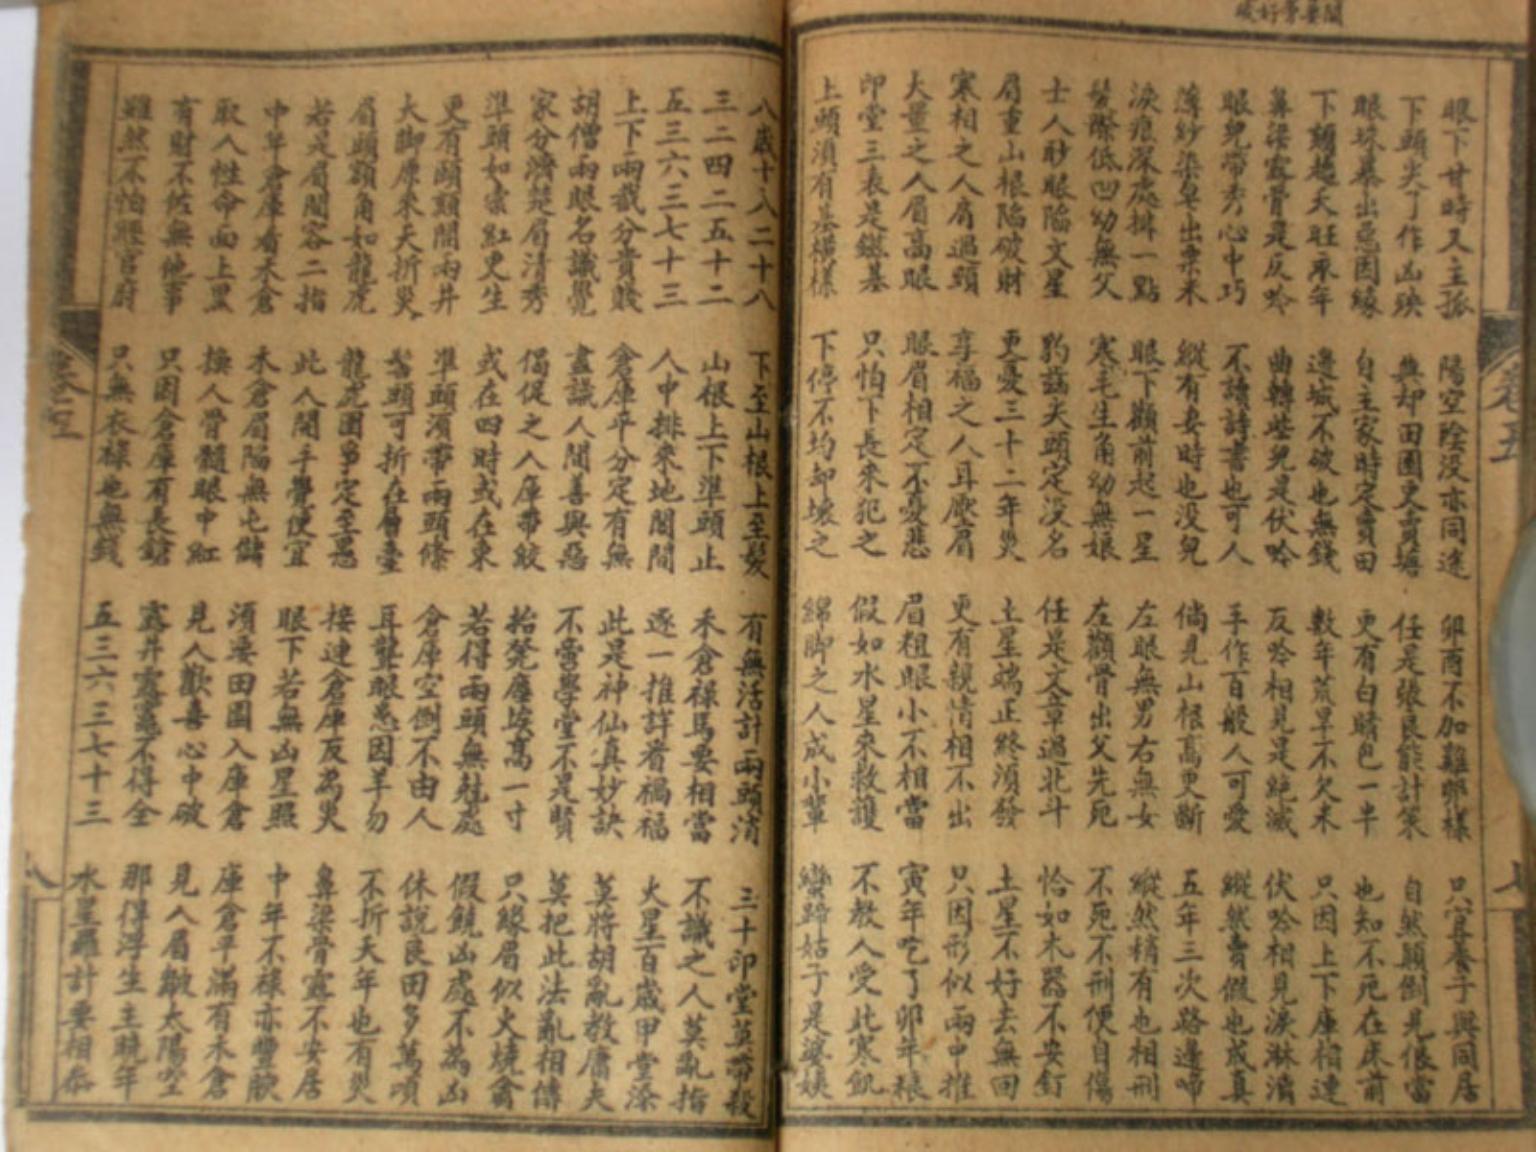 眼下廿時又主孤 陽空陰没亦同途 卯酉不加難郎樣 只宜養子與同居
下頭尖了作凶殃 典却田園更賣塘 任是張良能計策 自然顛倒見倀當
眼珠暴出惡因緣 自主家時定賣田 更有白睛包一半 也知不死在床前
下頦趫天旺末年 邊城不破也無錢 數年荒旱不欠米 只因上下庫相連
鼻梁露骨是反吟 曲轉些兒是伏吟 反吟相見是絕滅 伏吟相見淚淋漓
眼兒帶秀心中巧 不讀詩書也可人 手作百般人可愛 縱然賣假也成真
薄紗染皂出粟米 縱有妻時也没兒 倘見山根高更斷 五年三次路邊啼
淚痕深處排一點 眼下顴前起一星 左眼無男右無女 縱然稍有也相刑
髮際低凹幼無父 寒毛生角幼無娘 左顴骨出父先死 不死不刑便自傷
士人眇眼陷文星 豹齒天頭定没名 任是文章過北斗 恰如木器不安釘
眉重山根陷破財 更憂三十二年災 土星端正終須發 土星不好去無回
寒相之人肩過頭 享福之人耳壓眉 更有親情相不出 只因形似雨中推
大量之人眉高眼 眼眉相定不憂悲 眉粗眼小不相當 寅年吃了卯年粮
印堂三表是鎡基 只怕下長來犯之 假如水星來救護 不教人受此寒飢
上頭須有基模樣 下停不均却壞之 綿脚之人成小輩 蠻蹄姑子是婆姨
八歲十八二十八 下至山根上至髮 有無活計兩頭消 三十印堂莫帶殺
三二四二五十二 山根上下準頭止 禾倉祿馬要相當 不識之人莫亂指
五三六三七十三 人中排來地閣間 逐一推詳看禍福 火星百歲甲堂添
上下兩截分貴賤 倉庫平分定有無 此是神仙真妙訣 莫將胡亂教庸夫
胡僧兩眼名識覺 盡識人間善與惡 不管學堂不是賢 莫把此法亂相傳
家分濟楚眉清秀 侷促之人庫帶紋 抬凳塵埃高一寸 只緣眉似火燒禽
準頭如宗紅更生 或在四時或在東 若得兩頭無尅處 假饒凶處不為凶
更有頤頭間兩井 準頭須帶兩頭條 倉庫空倒不由人 休說良田多萬頃
大脚原來夭折災 鬚頭可折在層臺 耳聾眼患因羊刃 不折天年也有災
眉頭額角如龍虎 龍虎圍爭定至惡 接連倉庫反為災 鼻梁骨露不安居
若是眉間容二指 此人開手覺便宜 眼下若無凶星照 中年不祿亦豐
中年倉庫看禾倉 禾倉眉陷無屯儲 須要田園入庫倉 庫倉平滿有禾倉
取人性命面上黑 換人骨髓眼中紅 見人歡喜心中破 見人眉皺太陽空
有財不佐無他事 只因倉庫有長鎗 露井露竈不得全 那得浮生主晚年
雖然不怕經官府 只無衣祿也無錢 五三六三七十三 水星羅計要相參
卷五
八